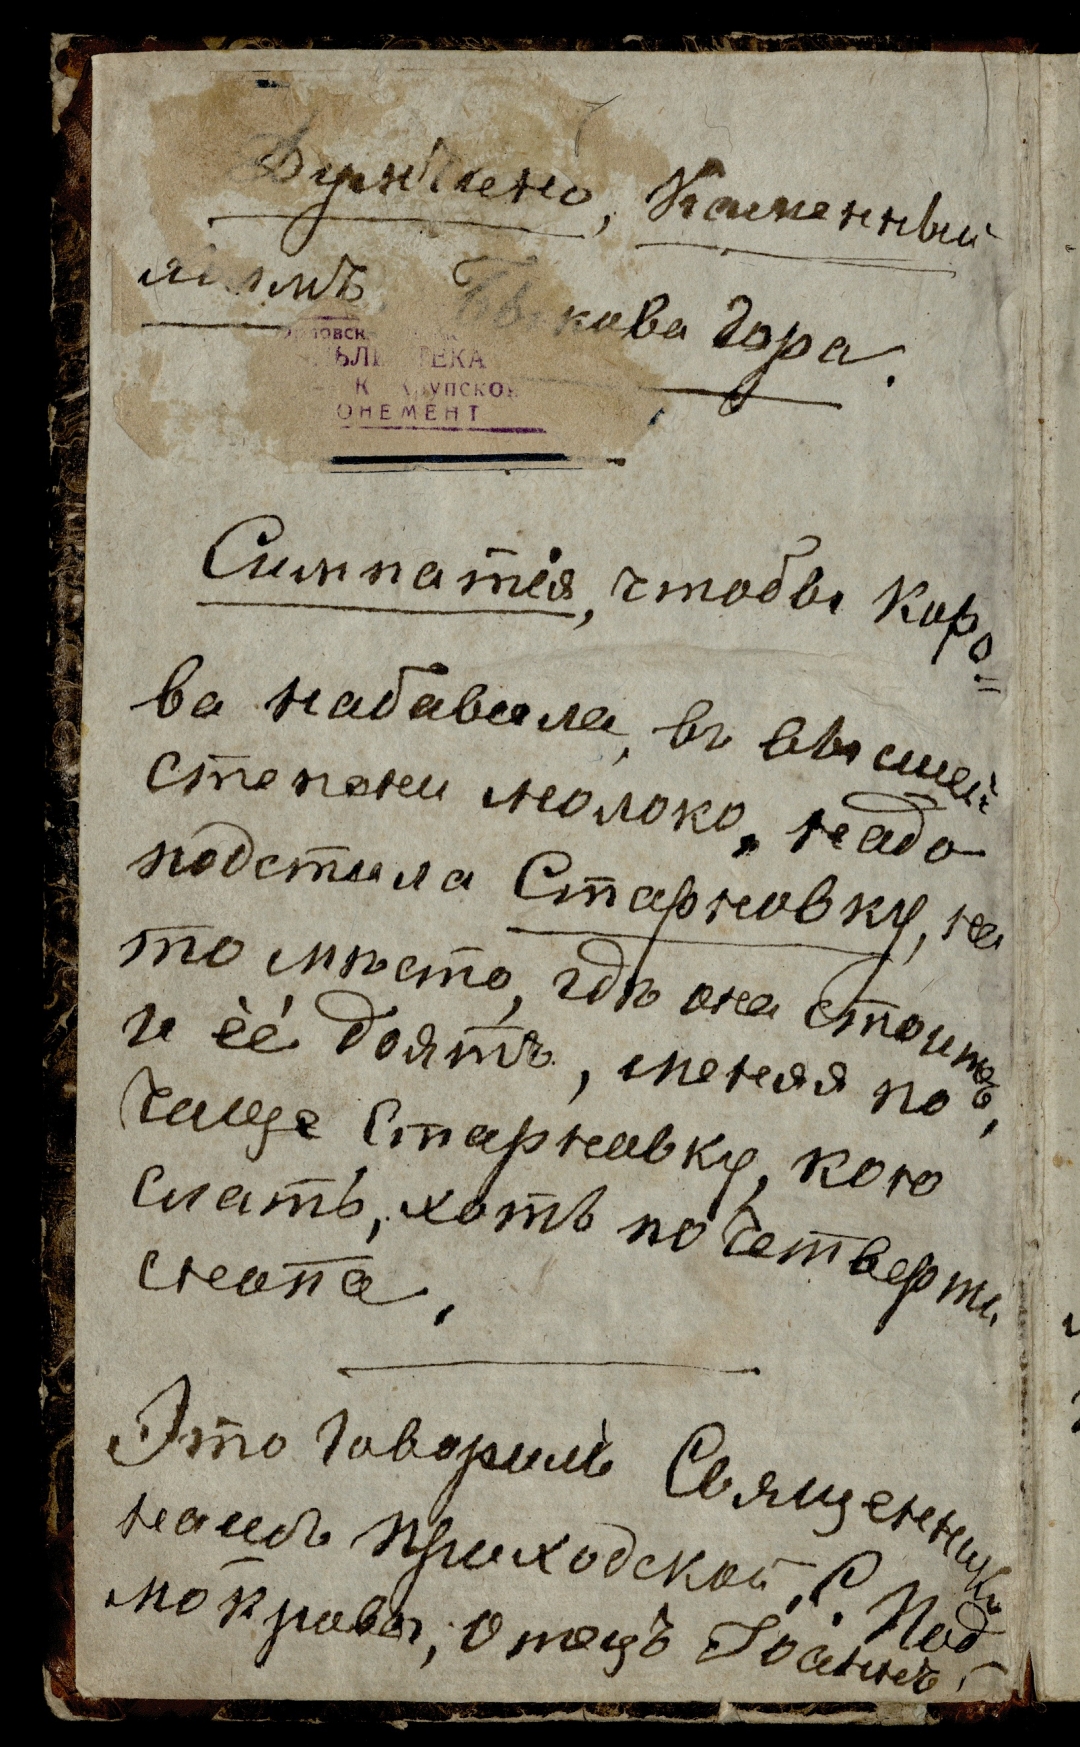 Каменный
кова Гора.
ОНЕМЕНТ
Симпатія, чтобы Коро=
ва набавила, въ высшей
степени молоко, надо
подстила Старновку, на
то мѣсто, гдѣ она стоитъ,
и её доятъ, меняя по
чаще Старновку, кото
слать, хоть по четверти
снопа,
Это Говорилъ Священникъ
нашъ Приходской, С. Под
мокровы, Отецъ Іоаннъ.